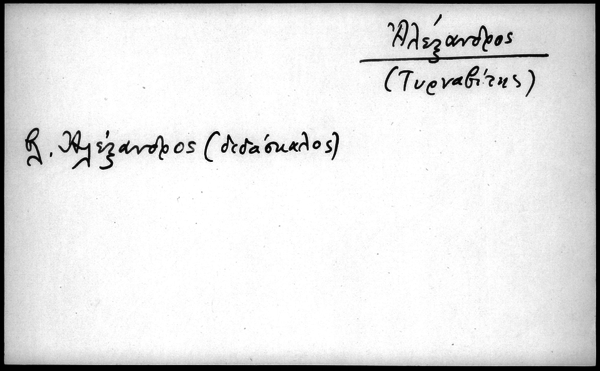 Ἀλέξανδρος
(Τυρναβίτης)
βλ. Ἀλέξανδρος (διδάσκαλος)